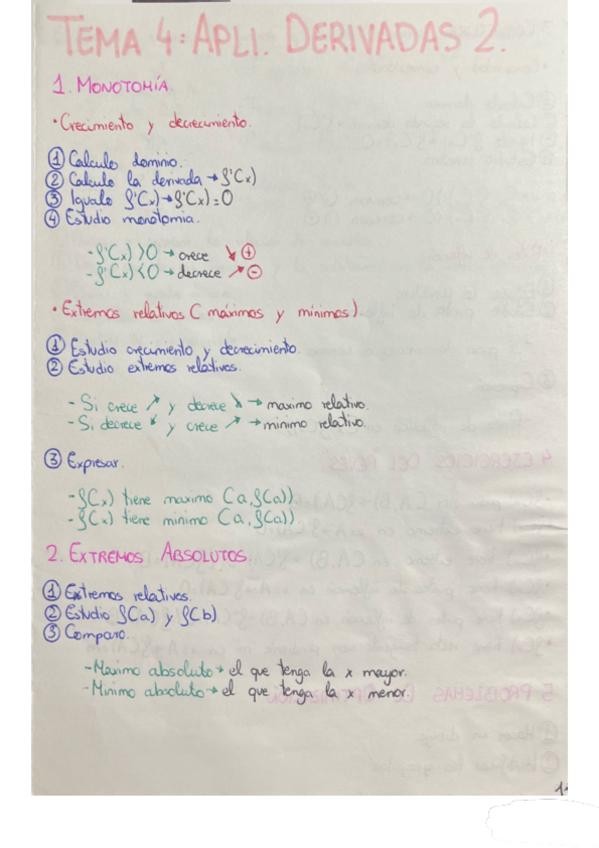 TEMA 4: APLI. DERIVADAS 2.
1. MONOTOMÍA
• Crecimiento y decrecimiento.
① Calculo dominio.
② Calculo la derivada → f'(x)
③ Igualo f'(x) → f'(x) = 0
④ Estudio monotomia.
- f'(x) > 0 → crece ↘ ⊕
- f'(x) < 0 → decrece ↗ ⊖
• Extremos relativos ( maximos y minimos)
① Estudio crecimiento y decrecimiento.
② Estudio extremos relativos.
- Si crece ↗ y decrece ↘ → maximo relativo.
- Si decrece ↙ y crece ↗ → minimo relativo.
③ Expresar.
- f(x) tiene maximo (a, f(a))
- f(x) tiene minimo (a, f(a))
2. EXTREMOS ABSOLUTOS.
① Extremos relativos.
② Estudio f(a) y f(b)
③ Comparo.
- Maximo absoluto → el que tenga la x mayor.
- Minimo absoluto → el que tenga la x menor.